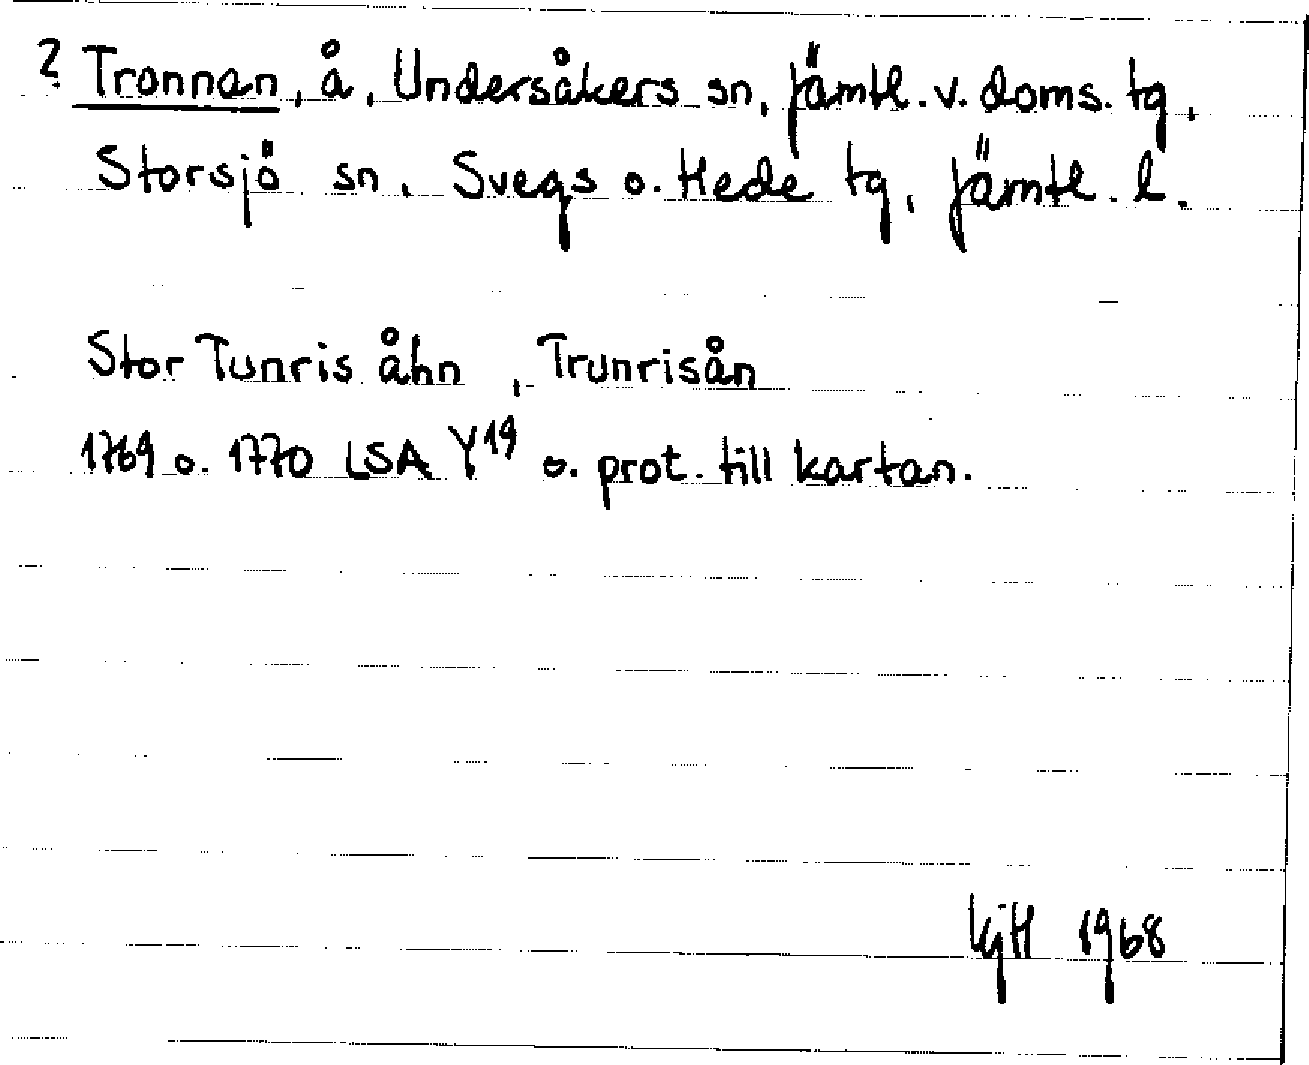 ? Tronnan, å, Undersåkers sn, Jämtl. v. doms. tg,
Storsjö sn, Svegs o. Hede tg, Jämtl. l.
Stor Tunris åhn, Trunrisån
1769 o. 1770 LSA Y19 o. prot. till kartan.
KjH 1968